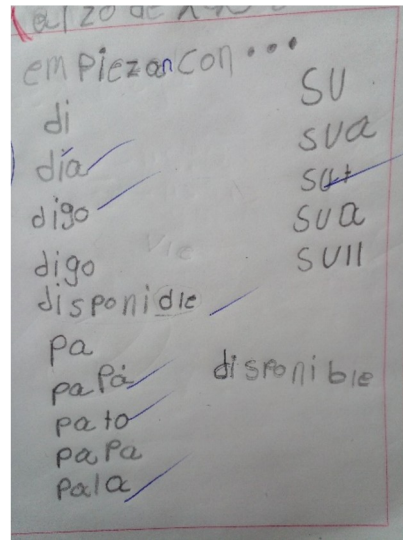 empiezan con...
di
día
digo
digo
disponidle
pa
papá
pato
papa
pala
su
sua
sua
sull
disponible